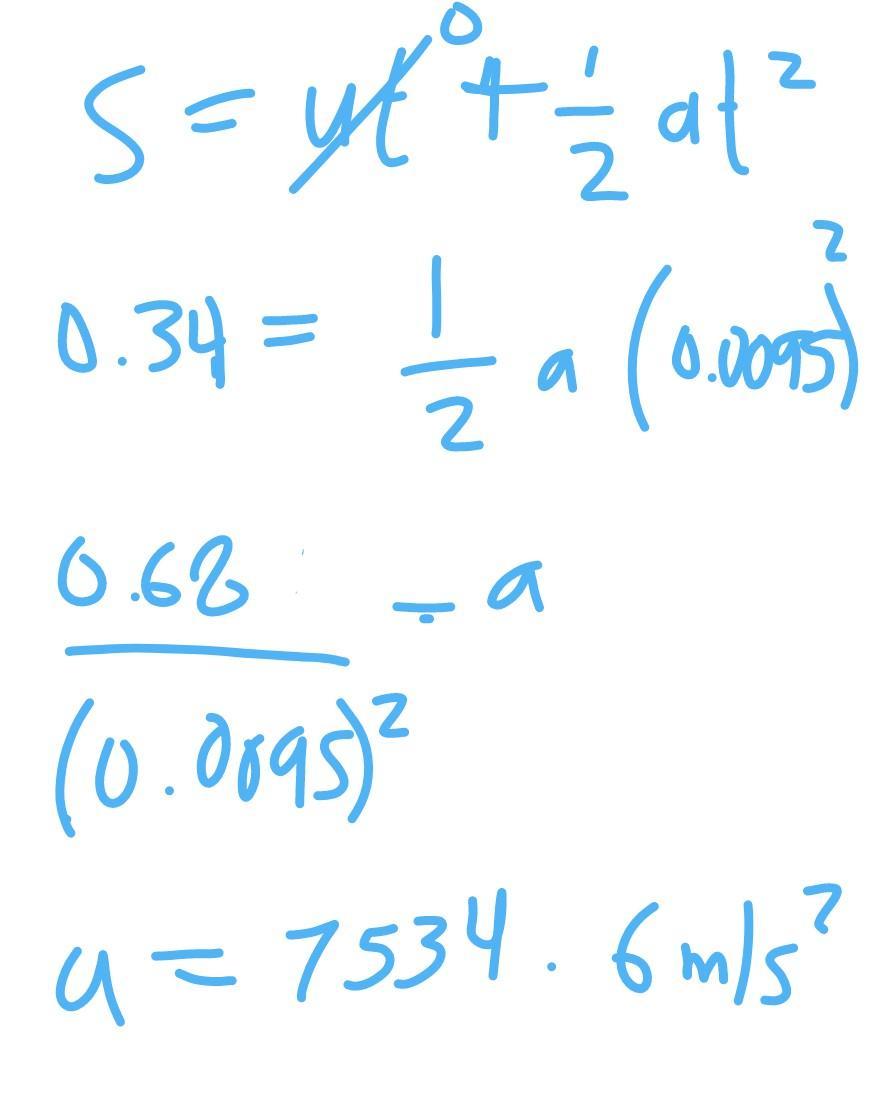 S = ut⁰ + 1/2 at²
0.34 = 1/2 a (0.0095)²
0.68/(0.0095)² = a
a = 7534.6 m/s²